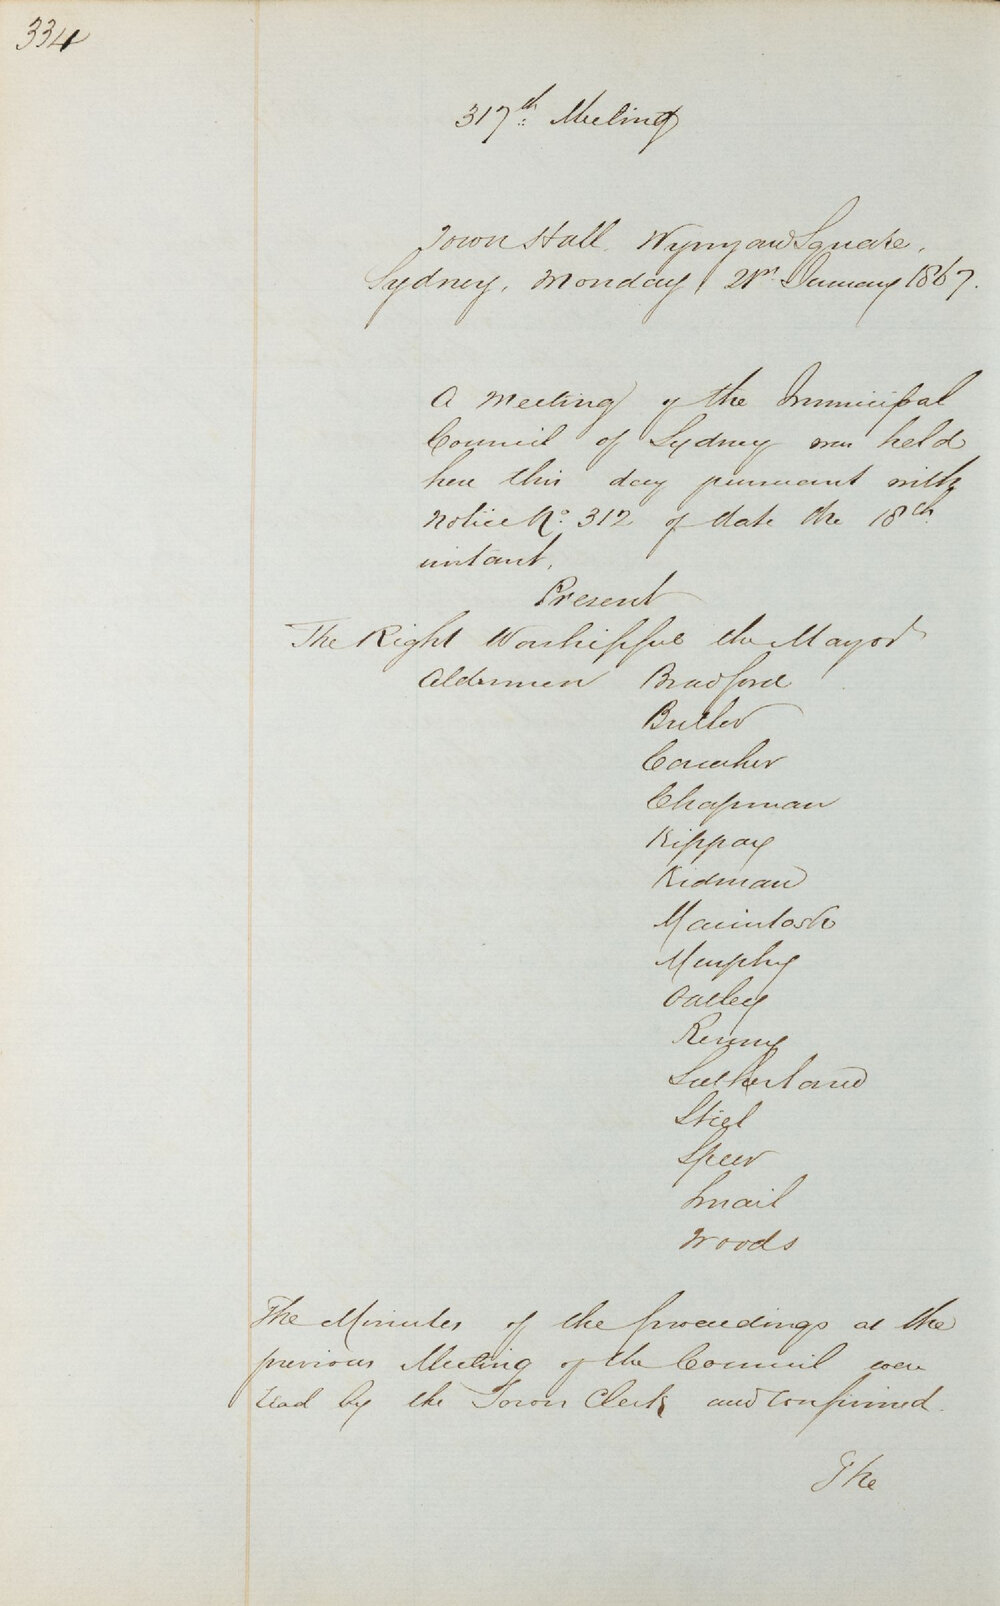 334
317th Meeting
Town Hall Wynyard Square,
Sydney, Monday 21st January 1867.
A Meeting of the Municipal
Council of Sydney was held
here this day pursuant with
notice No. 312 of date the 18th
instant.
Present
The Right Worshipful the Mayor
Aldermen Bradford
Butler
Caraher
Chapman
Kippax
Kidman
Macintosh
Murphy
Oatley
Renny
Sutherland
Steel
Speer
Smail
Woods
The Minutes of the proceedings at the
previous Meeting of the Council were
read by the Town Clerk and confirmed.
The